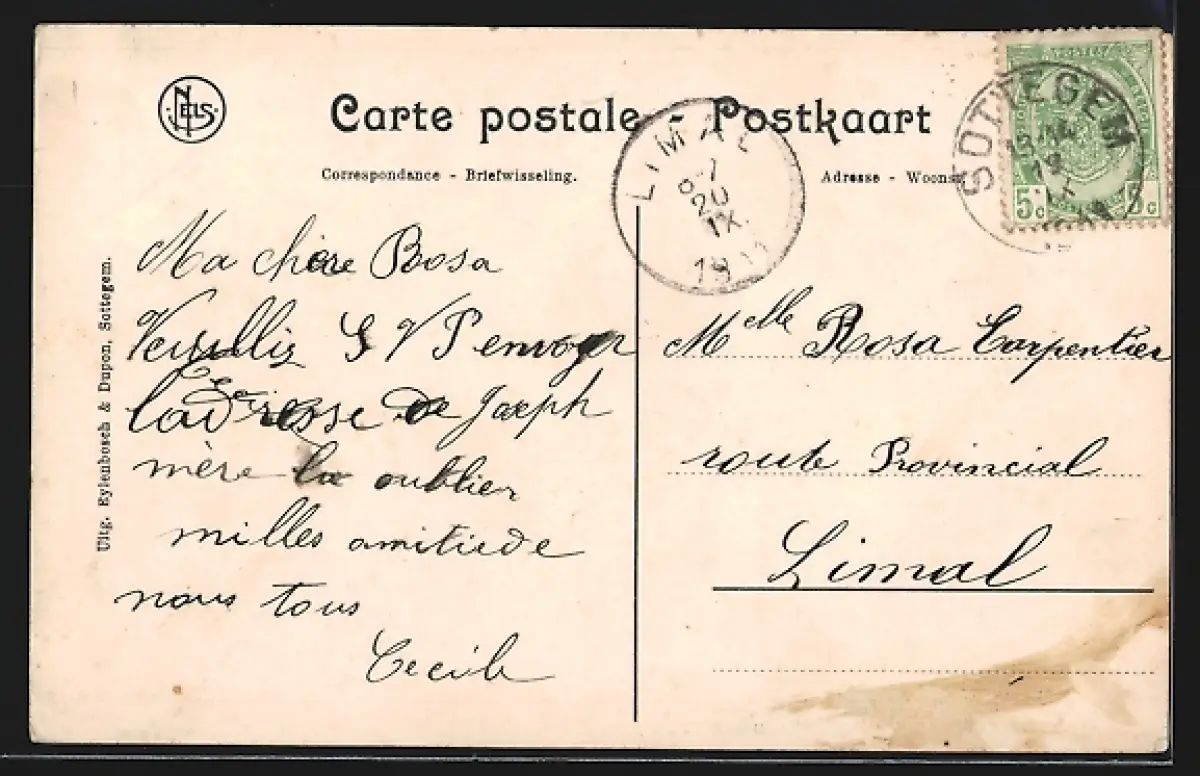 NELS
Carte postale - Postkaart
Correspondance - Briefwisseling.
Adresse - Woonst
LIMAL
8-
20
IX
1911
SOTTEGEM
19
5c 5c
Uitg. Eylenbosch & Dupon, Sottegem.
Ma chère Rosa
Veuilliz S V P envoyer
l'adresse de Joseph
mère la oublier
milles amitiede
nous tous
Cecile
Mlle Rosa Carpentier
route Provincial
Limal